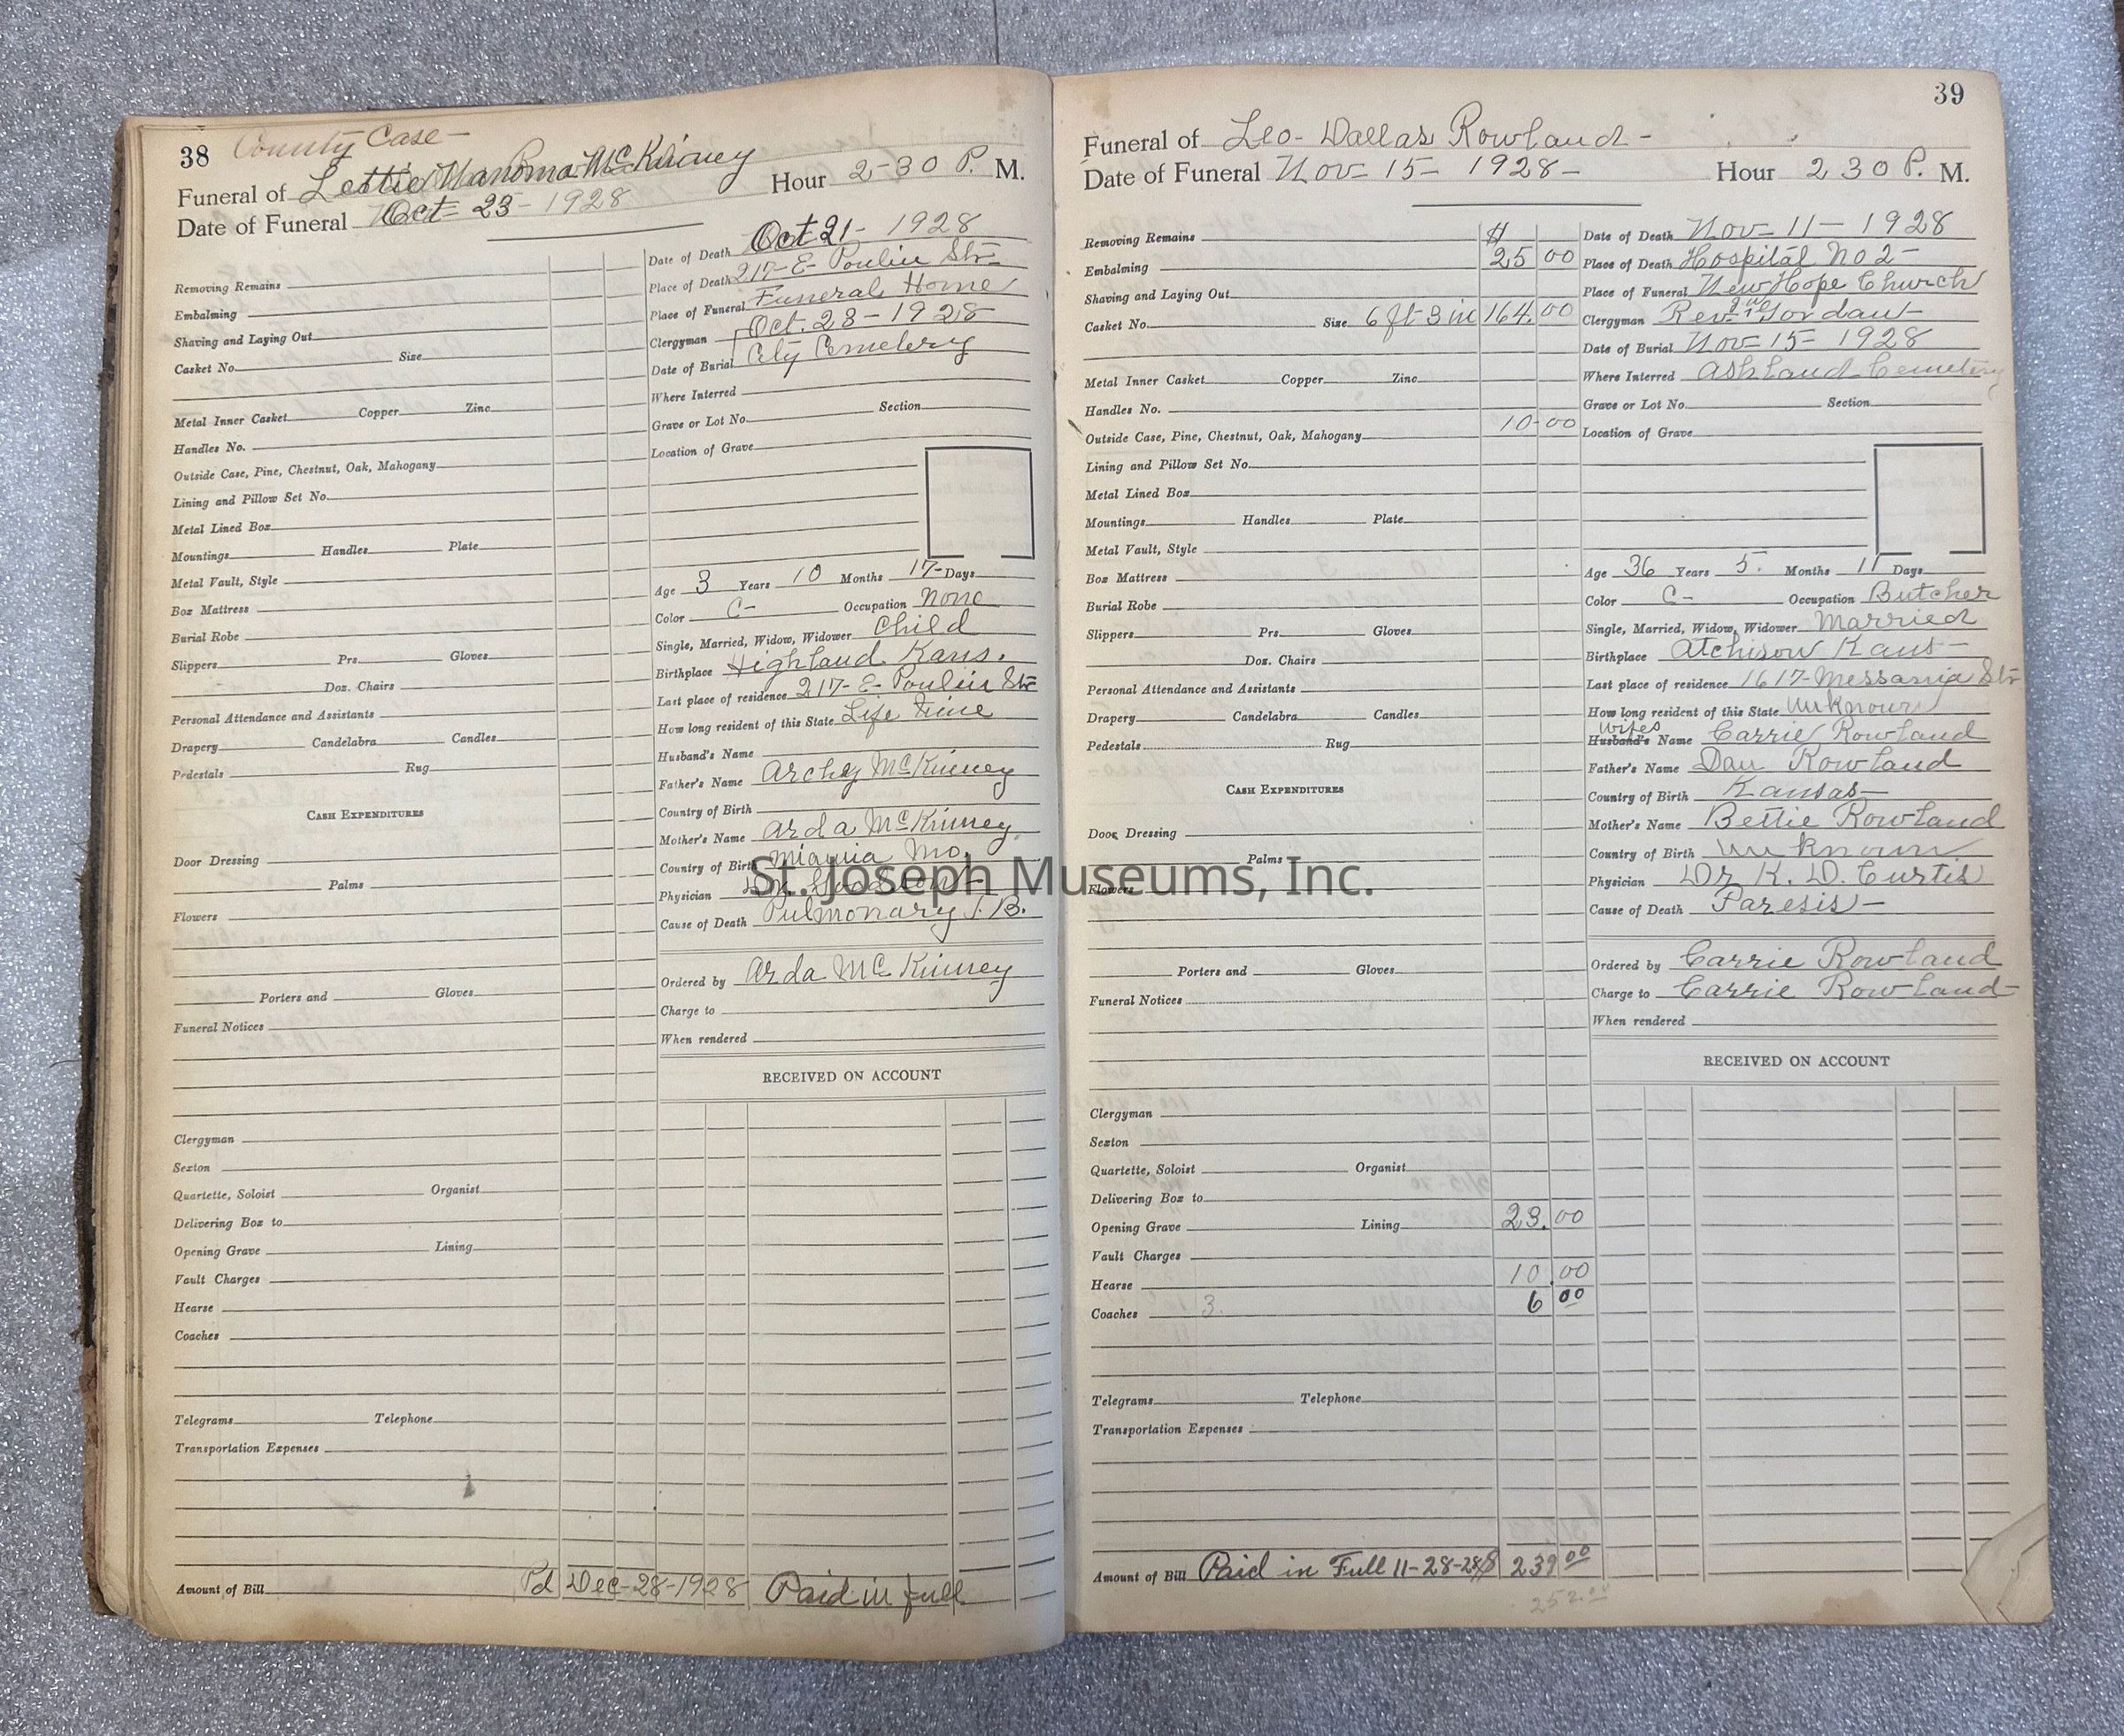 38 County Case-
Funeral of Lettie Wanoma McKinney Hour 2-30 P. M.
Date of Funeral Oct- 23- 1928
Removing Remains
Embalming
Shaving and Laying Out
Casket No. Size
Metal Inner Casket Copper Zinc
Handles No.
Outside Case, Pine, Chestnut, Oak, Mahogany
Lining and Pillow Set No.
Metal Lined Box
Mountings Handles Plate
Metal Vault, Style
Box Mattress
Burial Robe
Slippers Prs. Gloves
Doz. Chairs
Personal Attendance and Assistants
Drapery Candelabra Candles
Pedestals Rug
CASH EXPENDITURES
Door Dressing
Palms
Flowers
Porters and Gloves
Funeral Notices
Clergyman
Sexton
Quartette, Soloist Organist
Delivering Box to
Opening Grave Lining
Vault Charges
Hearse
Coaches
Telegrams Telephone
Transportation Expenses
Amount of Bill Pd Dec-28-1928 Paid in full
Date of Death Oct 21- 1928
Place of Death 217- E- Poulin Str-
Place of Funeral Funeral Home
Clergyman Oct. 23-1928
Date of Burial City Cemetery
Where Interred
Grave or Lot No. Section
Location of Grave
Age 3 Years 10 Months 17- Days
Color C- Occupation None
Single, Married, Widow, Widower Child
Birthplace Highland Kans.
Last place of residence 217- E- Poulin Str
How long resident of this State Life time
Husband's Name
Father's Name Archy McKinney
Country of Birth
Mother's Name Arda McKinney
Country of Birth Mo.
Physician
Cause of Death Pulmonary T.B.
Ordered by Arda McKinney
Charge to
When rendered
RECEIVED ON ACCOUNT
39
Funeral of Leo- Dallas Rowland-
Date of Funeral Nov- 15- 1928- Hour 2 30 P. M.
Removing Remains $
Embalming 25 00
Shaving and Laying Out
Casket No. Size 6 ft 3 in 164.00
Metal Inner Casket Copper Zinc
Handles No.
Outside Case, Pine, Chestnut, Oak, Mahogany 10-00
Lining and Pillow Set No.
Metal Lined Box
Mountings Handles Plate
Metal Vault, Style
Box Mattress
Burial Robe
Slippers Prs. Gloves
Doz. Chairs
Personal Attendance and Assistants
Drapery Candelabra Candles
Pedestals Rug
CASH EXPENDITURES
Door Dressing
Palms
Flowers
Porters and Gloves
Funeral Notices
Clergyman
Sexton
Quartette, Soloist Organist
Delivering Box to
Opening Grave Lining 23.00
Vault Charges
Hearse 10.00
Coaches 3. 6 00
Telegrams Telephone
Transportation Expenses
Amount of Bill Paid in Full 11-28-28 $ 239 00
252.00
Date of Death Nov- 11- 1928
Place of Death Hospital No 2-
Place of Funeral New Hope Church
Clergyman Rev- Jordant
Date of Burial Nov- 15- 1928
Where Interred Ashland Cemetery
Grave or Lot No. Section
Location of Grave
Age 36 Years 5. Months 11 Days
Color C- Occupation Butcher
Single, Married, Widow, Widower Married
Birthplace Atchison Kans-
Last place of residence 1617- Messania Str
How long resident of this State Unknown
Wifes
Husband's Name Carrie Rowland
Father's Name Dan Rowland
Country of Birth Kansas-
Mother's Name Bettie Rowland
Country of Birth Unknown
Physician Dr K. D. Curtis
Cause of Death Paresis-
Ordered by Carrie Rowland
Charge to Carrie Rowland-
When rendered
RECEIVED ON ACCOUNT
St. Joseph Museums, Inc.